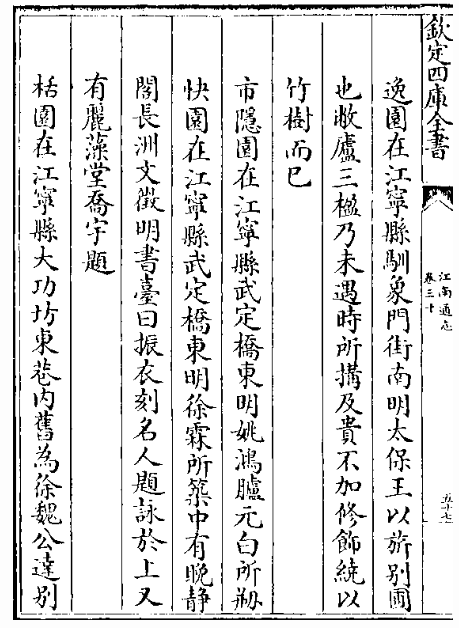 欽定四庫全書
江南通志
卷三十
五十七
逸園在江寧縣馴象門街南明太保王以旂别圃
也敝廬三楹乃未遇時所搆及貴不加修飾繞以
竹樹而已
市隱園在江寧縣武定橋東明姚鴻臚元白所剏
快園在江寧縣武定橋東明徐霖所築中有晚静
閣長洲文徵明書臺曰振衣刻名人題詠於上又
有麗藻堂喬宇題
栝園在江寧縣大功坊東巷内舊為徐魏公達别